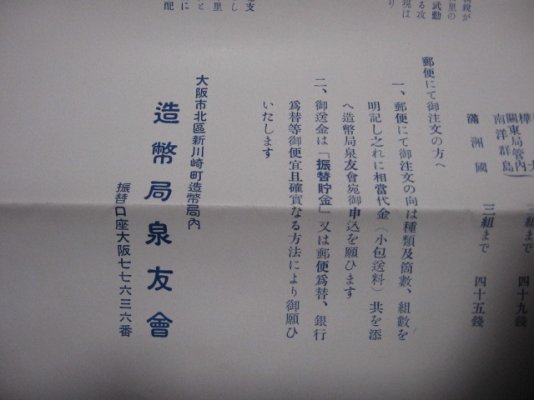 樺太
關東局管內
南洋群島
三組まで 四十九錢
滿洲國 三組まで 四十五錢
郵便にて御注文の方へ
一、郵便にて御注文の向は種類及箇數、組數を
明記し之れに相當代金（小包送料）共を添
へ造幣局泉友會宛御申込を願ひます
二、御送金は「振替貯金」又は郵便爲替、銀行
爲替等御便宜且確實なる方法により御願ひ
いたします
大阪市北區新川崎町造幣局內
造幣局泉友會
振替口座大阪七七六三六番